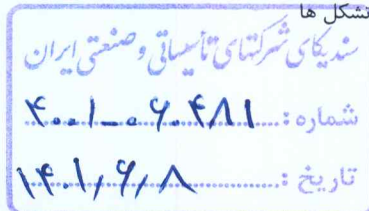 تشکل ها
سندیکای شرکتهای تأسیساتی و صنعتی ایران
شماره : ۴۰۰۱-۰۶۰۴۸۱
تاریخ : ۱۴۰۱,۶,۸